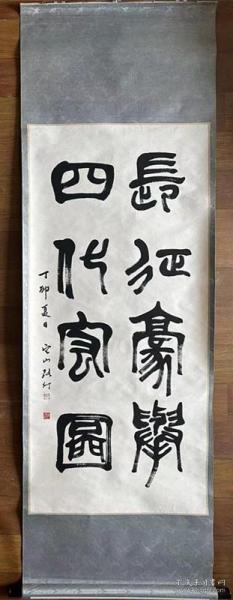 長征豪舉
四化宏圖
丁卯夏日
孔夫子旧书网